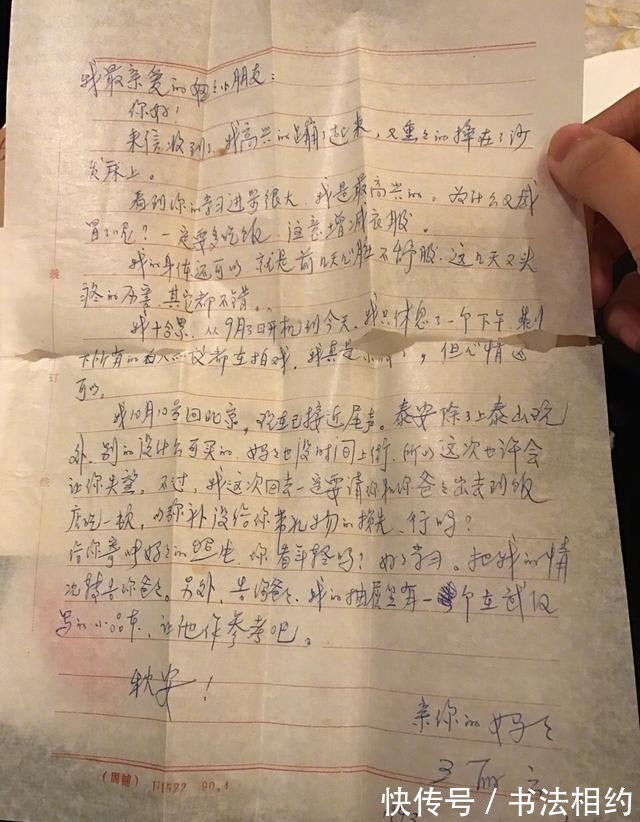 我最亲爱的小朋友：
你好！
来信收到，我高兴的蹦了起来，又重重的摔在了沙
发床上。
看到你的学习进步很大，我是最高兴的。为什么又感
冒了呢？一定要多吃饭，注意增减衣服。
我的身体还可以，就是前几天心脏不舒服，这几天又头
疼的厉害，其它都不错。
我十分累，从9月3日开机到今天，我只休息了一个下午，剩
下所有的都在拍戏，我真是，但心情还
可以。
我10月10号回北京，现在已接近尾声。泰安除了上泰山玩
外，别的没什么可买的，妈妈也没时间上街，所以这次也许会
让你失望。不过，我这次回去一定要请你和你爸爸出去到饭
店吃一顿，以弥补没给你带礼物的损失，行吗？
给你寄妈妈的照片，你看年轻吗？好好学习。把我的情
况转告你爸爸。另外，告诉爸爸，我的抽屉里有一个在武汉
写的小品本，让他作参考吧。
秋安！
亲你的妈妈
王丽
装
订
线
1522 90.4
快传号／书法相约